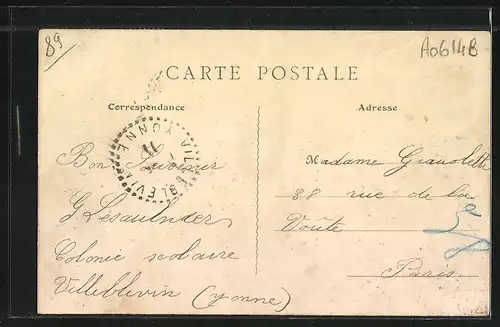 89
A0614B
CARTE POSTALE
Correspondance
Adresse
YONNE VILLEBLEVIN
Bon Souvenir
G Lesaulnier
Colonie scolaire
Villeblevin (Yonne)
Madame
38 rue de la
Voûte
Paris